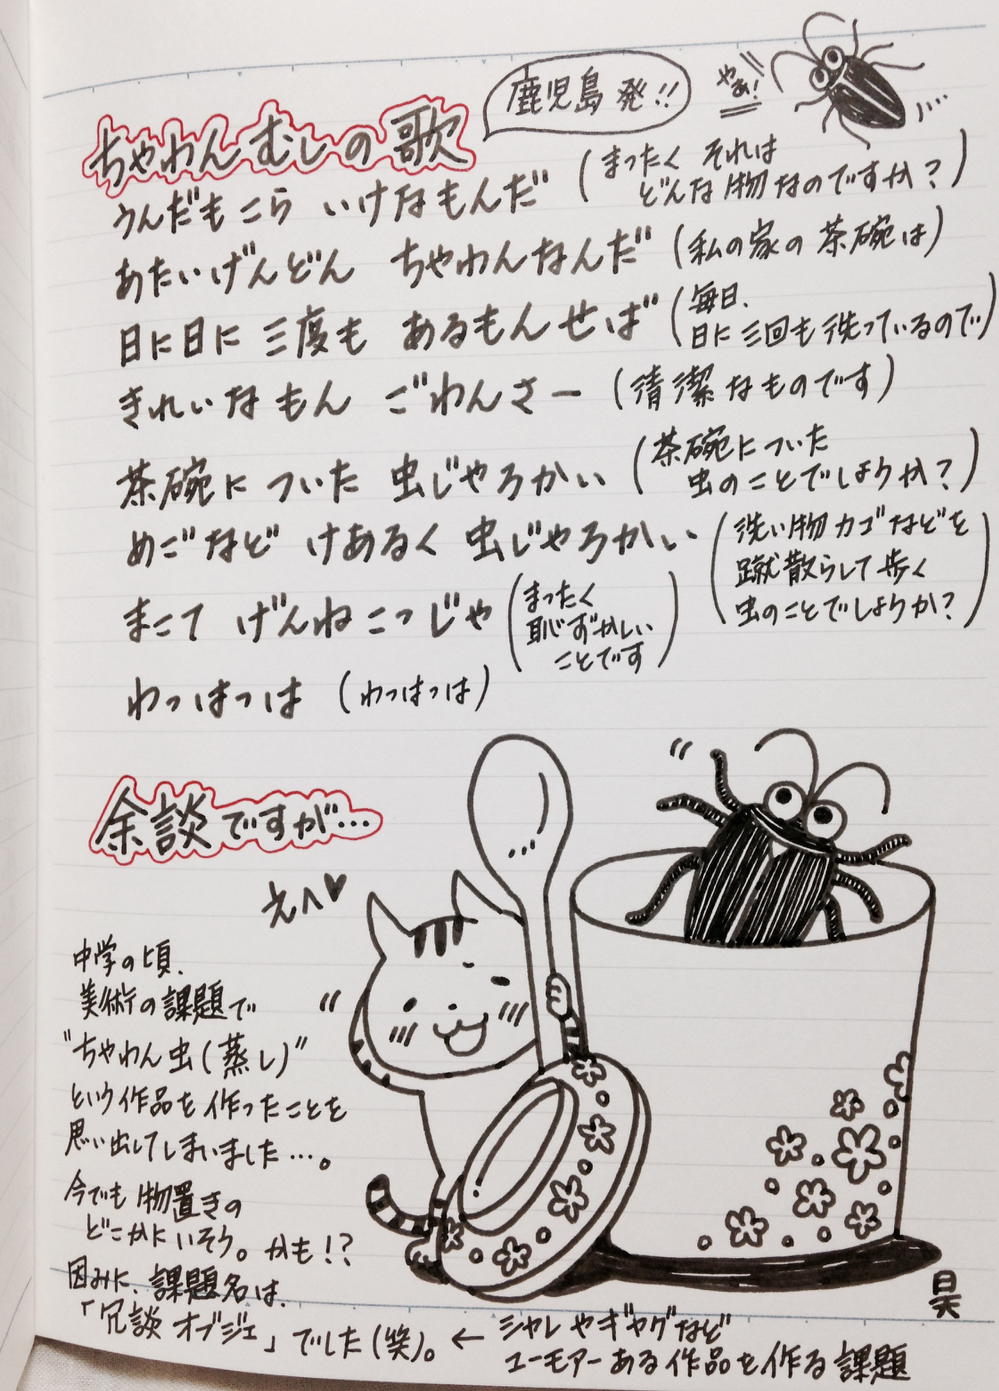 鹿児島発!!
やあ!
ちゃわんむしの歌
うんだもこら いけなもんだ (まったく それは
どんな物なのですか?)
あたいげんどん ちゃわんなんだ (私の家の茶碗は)
日に日に三度も あるもんせば (毎日、
日に三回も洗っているので)
きれいなもん ごわんさー (清潔なものです)
茶碗に ついた 虫じゃろかい (茶碗についた
虫のことでしょうか?)
めごなど けあるく 虫じゃろかい (洗い物カゴなどを
蹴散らして歩く
虫のことでしょうか?)
まこて げんねこっじゃ (まったく
恥ずかしい
ことです)
わっはっは (わっはっは)
余談ですが…
えへ♥
中学の頃、
美術の課題で
"ちゃわん虫(蒸し)"
という作品を作ったことを
思い出してしまいました…。
今でも物置きの
どこかにいそう。かも!?
因みに、課題名は、
「冗談オブジェ」でした(笑)。← シャレやギャグなど
ユーモアーある作品を作る課題